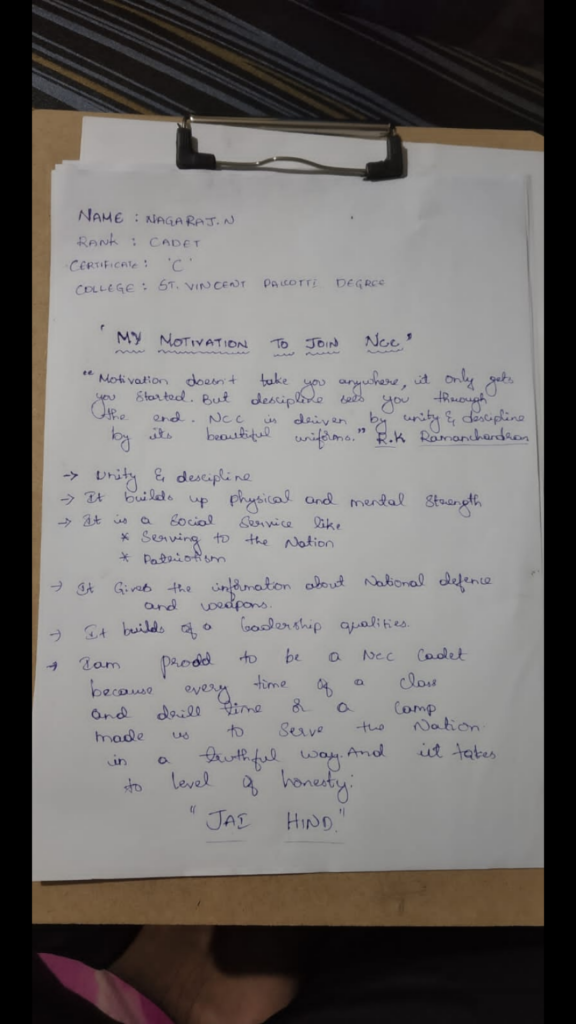 NAME : NAGARAJ.N
RANK : CADET
CERTIFICATE : 'C'
COLLEGE : ST. VINCENT PALLOTTI DEGREE
" MY MOTIVATION TO JOIN NCC "
"Motivation doesn't take you anywhere, it only gets
you started. But descipline sees you through
the end. NCC is driven by unity & descipline
by its beautiful uniforms." R.K Ramanchandran
→ Unity & descipline
→ It builds up physical and mental strength
→ It is a social service like
* Serving to the Nation
* Patriotism
→ It Gives the information about National defence
and weapons.
→ It builds of a leadership qualities.
→ I am proud to be a NCC Cadet
because every time of a class
and drill time & a camp
made us to serve the Nation
in a truthful way. And it takes
to level of honesty:
" JAI HIND."